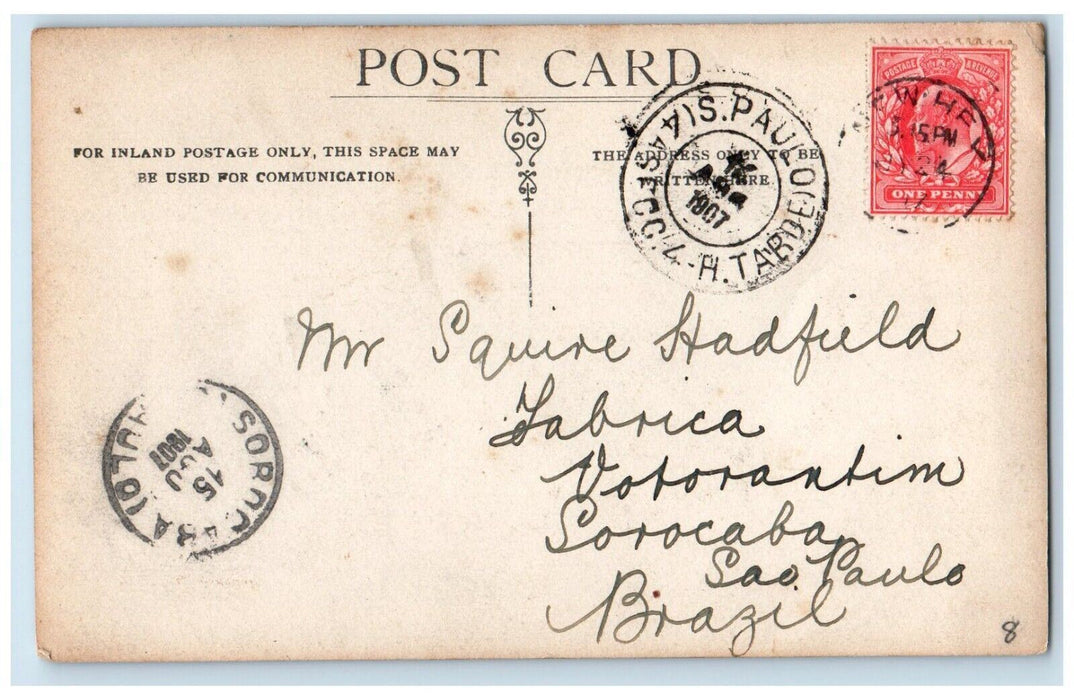 POST CARD
FOR INLAND POSTAGE ONLY, THIS SPACE MAY
BE USED FOR COMMUNICATION.
THE ADDRESS ONLY TO BE
WRITTEN HERE
POSTAGE & REVENUE
ONE PENNY
15 PM
24
(S. PAULO)
4-H. TARDE
1907
Mr Squire Hadfield
Fabrica
Votorantim
Sorocaba
Sao Paulo
Brazil
SOROCABA
15
1907
8